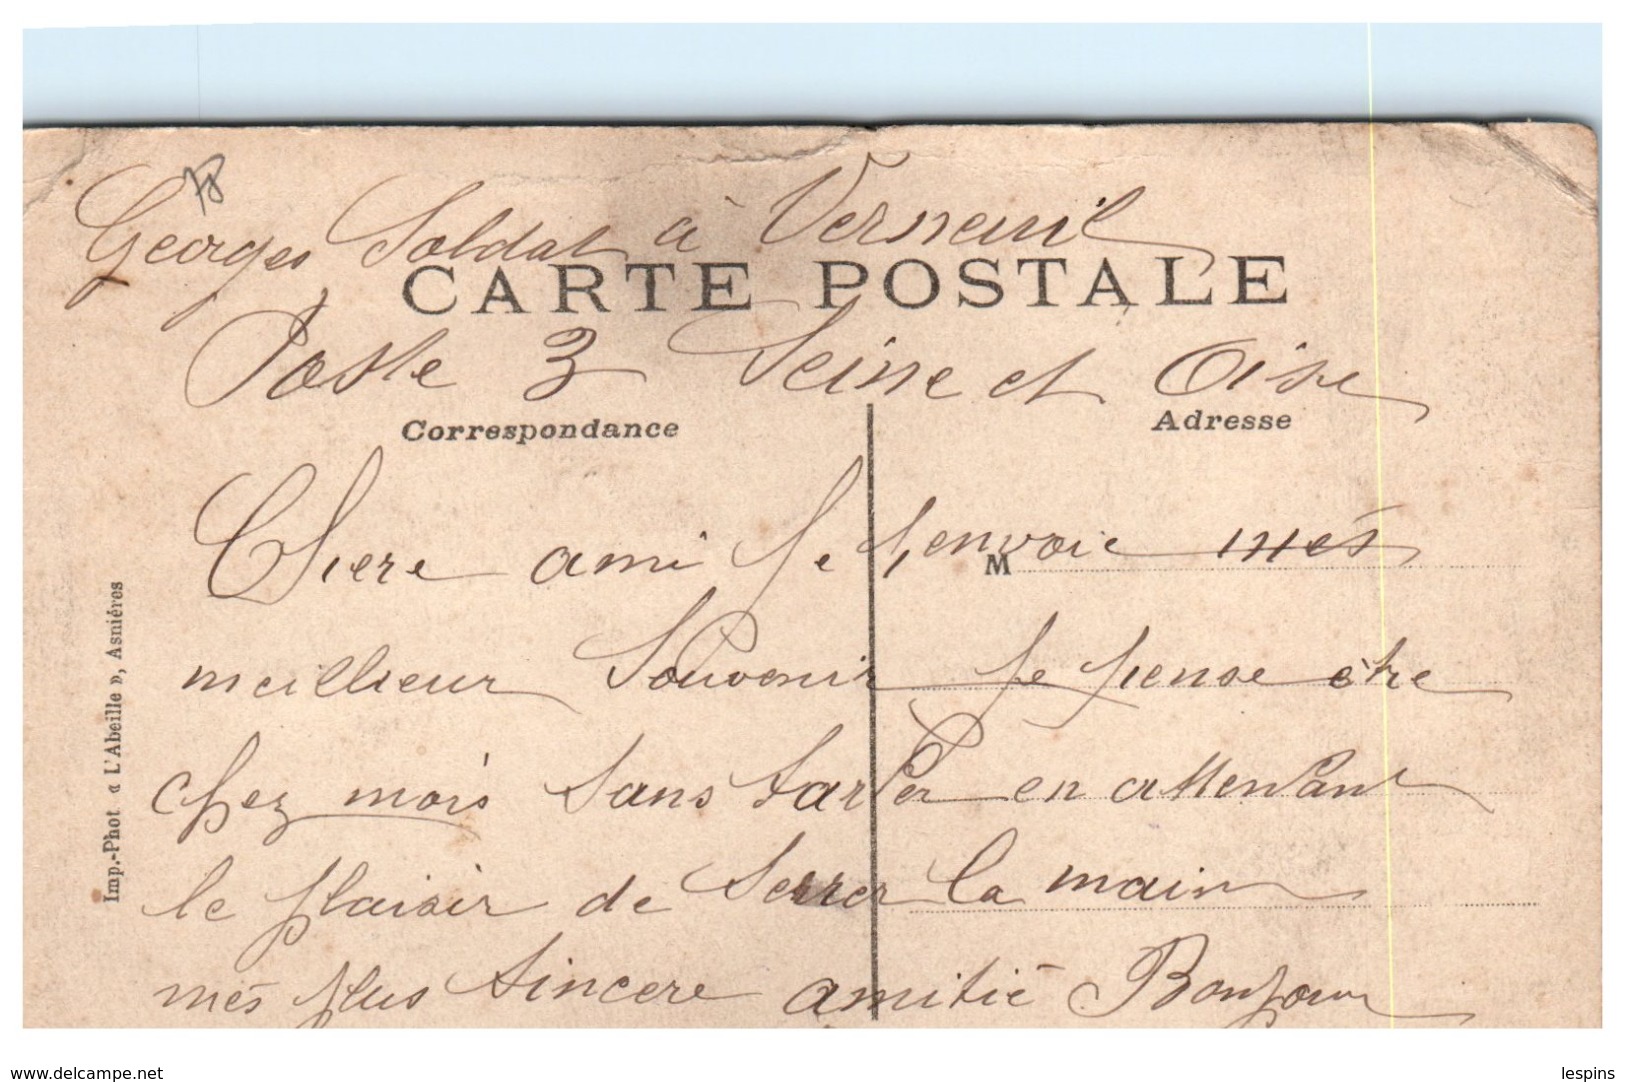 Georges Soldat à Verneuil
CARTE POSTALE
Poste 3 Seine et Oise
Correspondance
Adresse
Chere ami Je t'envoie més
M
meillieur Souvenir Je pense être
chez mois sans tarder en attendant
le plaisir de Serrer la main
més plus Sincere amitié Bonjour
Imp.-Phot « L'Abeille », Asnières
www.delcampe.net
lespins